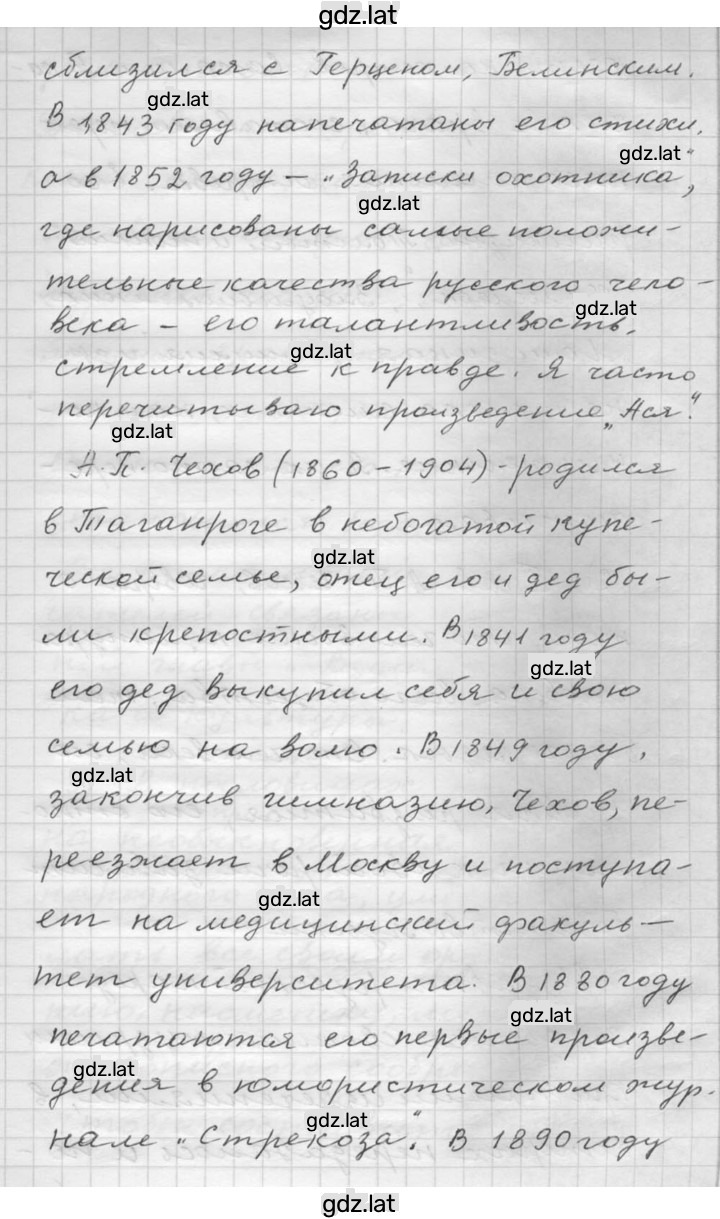 gdz.lat
сблизился с Герценом, Белинским.
gdz.lat
В 1843 году напечатаны его стихи,
gdz.lat
а в 1852 году – „Записки охотника“,
gdz.lat
где нарисованы самые положи-
тельные качества русского чело-
gdz.lat
века – его талантливость,
gdz.lat
стремление к правде. Я часто
перечитываю произведение „Ася“.
gdz.lat
А. П. Чехов (1860 – 1904) - родился
в Таганроге в небогатой купе-
gdz.lat
ческой семье, отец его и дед бы-
ли крепостными. В 1841 году
gdz.lat
его дед выкупил себя и свою
семью на волю. В 1849 году,
gdz.lat
закончив гимназию, Чехов, пе-
реезжает в Москву и поступа-
gdz.lat
ет на медицинский факуль-
тет университета. В 1880 году
gdz.lat
печатаются его первые произве-
gdz.lat
дения в юмористическом жур-
gdz.lat
нале „Стрекоза“. В 1890 году
gdz.lat